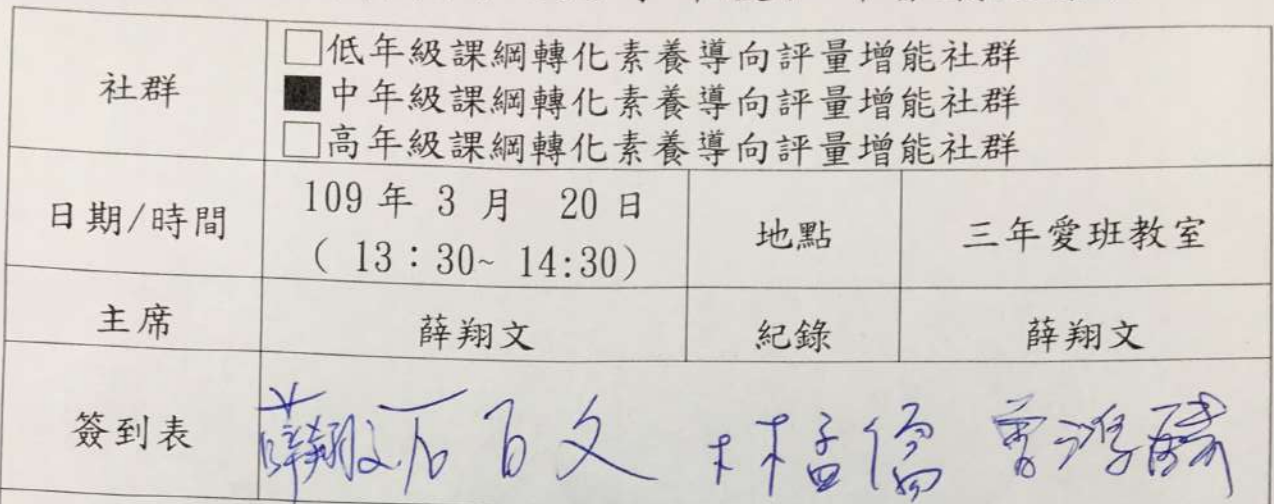 社群
□低年級課綱轉化素養導向評量增能社群
■中年級課綱轉化素養導向評量增能社群
□高年級課綱轉化素養導向評量增能社群
日期/時間
109 年 3 月 20 日
( 13：30~ 14:30)
地點
三年愛班教室
主席
薛翔文
紀錄
薛翔文
簽到表
薛翔文 石百文 林孟儒